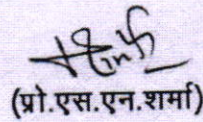 (प्रो.एस.एन.शर्मा)